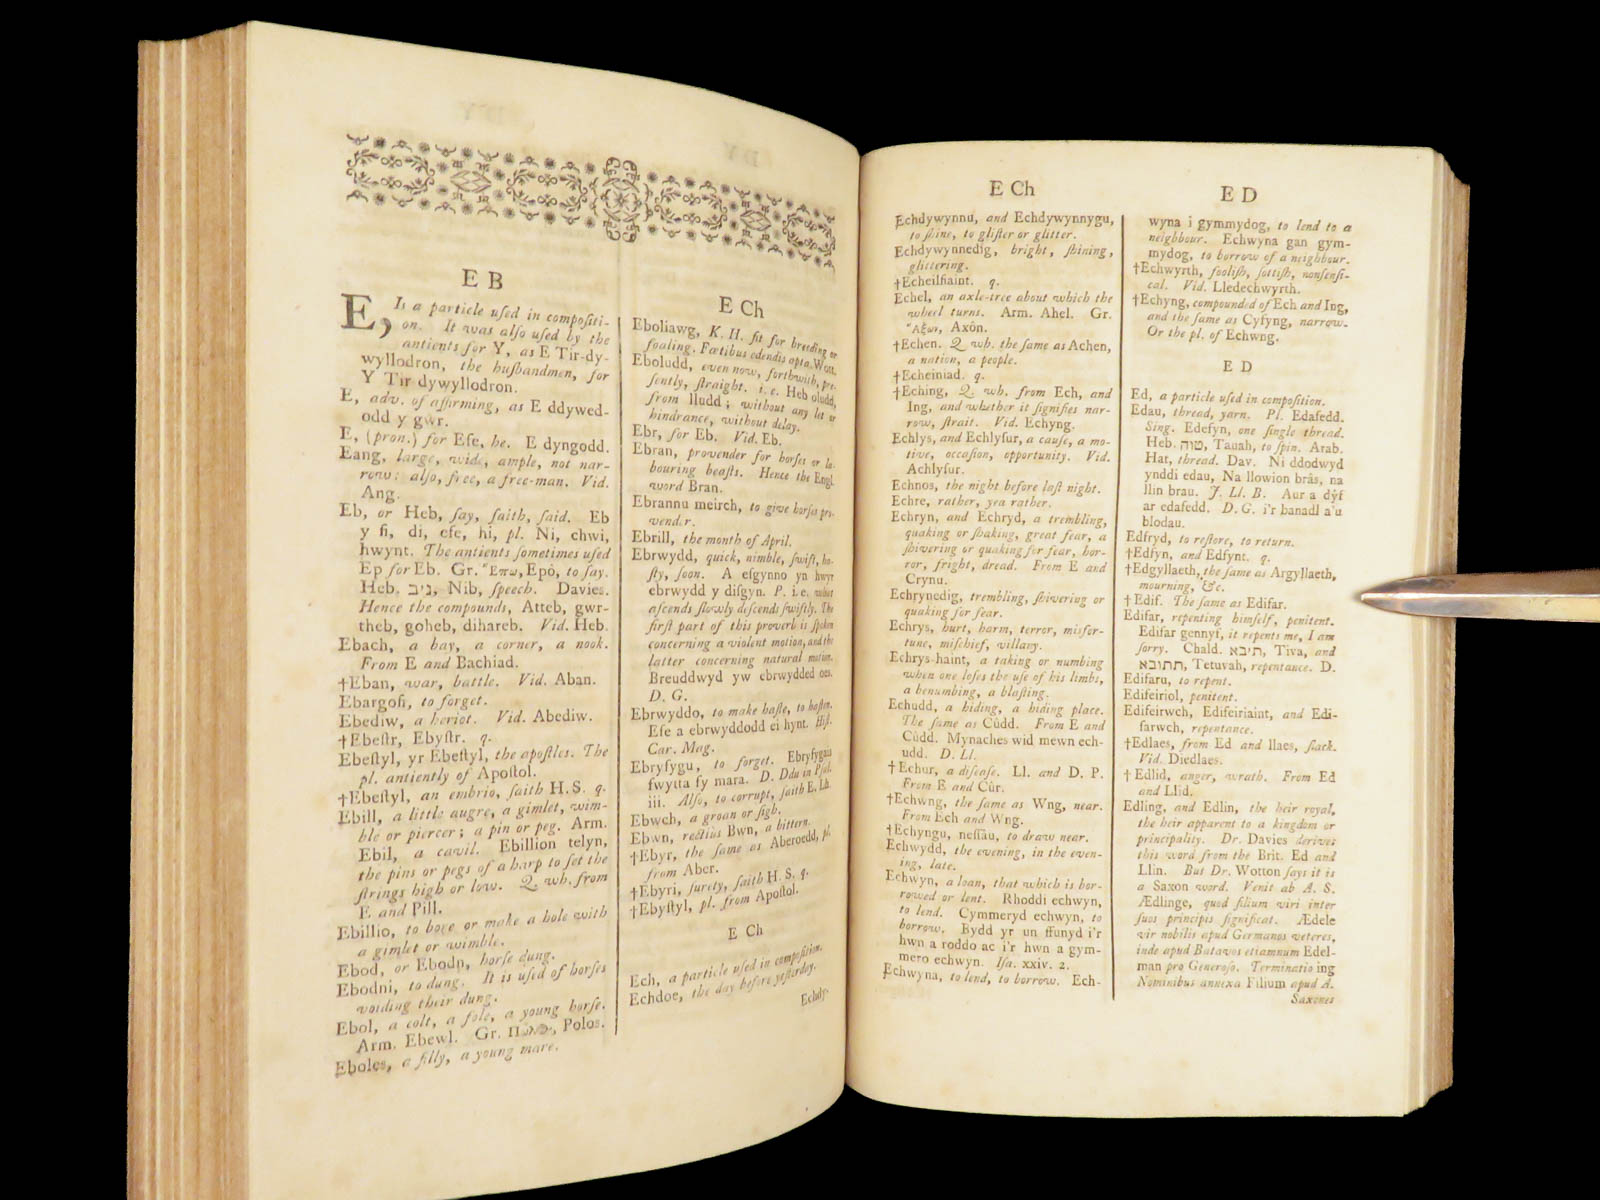 E B
E, Is a particle uſed in compoſiti-
on. It was alſo uſed by the
antients for Y, as E Tir-dy-
wyllodron, the huſbandmen, for
Y Tir dywyllodron.
E, adv. of affirming, as E ddywed-
odd y gŵr.
E, (pron.) for Efe, he. E dyngodd.
Eang, large, wide, ample, not nar-
row: alſo, free, a free-man. Vid.
Ang.
Eb, or Heb, ſay, ſaith, ſaid. Eb
y fi, di, efe, hi, pl. Ni, chwi,
hwynt. The antients ſometimes uſed
Ep for Eb. Gr. Ἔπω, Epô, to ſay.
Heb. ניב, Nib, ſpeech. Davies.
Hence the compounds, Atteb, gwr-
theb, goheb, dihareb. Vid. Heb.
Ebach, a bay, a corner, a nook.
From E and Bachiad.
†Eban, war, battle. Vid. Aban.
Ebargofi, to forget.
Ebediw, a heriot. Vid. Abediw.
†Ebeſtr, Ebyſtr. q.
Ebeſtyl, yr Ebeſtyl, the apoſtles. The
pl. antiently of Apoſtol.
†Ebeſtyl, an embrio, ſaith H. S. q.
Ebill, a little augre, a gimlet, wim-
ble or piercer; a pin or peg. Arm.
Ebil, a cavil. Ebillion telyn,
the pins or pegs of a harp to ſet the
ſtrings high or low. Q. wh. from
E and Pill.
Ebillio, to bore or make a hole with
a gimlet or wimble.
Ebod, or Ebodn, horſe dung.
Ebodni, to dung. It is uſed of horſes
voiding their dung.
Ebol, a colt, a fole, a young horſe.
Arm. Ebewl. Gr. Πῶλος, Polos.
Eboles, a filly, a young mare.
E Ch
Eboliawg, K. H. fit for breeding or
foaling. Fœtibus edendis apta. Wott.
Eboludd, even now, forthwith, pre-
ſently, ſtraight. i. e. Heb oludd,
from lludd; without any let or
hindrance, without delay.
Ebr, for Eb. Vid. Eb.
Ebran, provender for horſes or la-
bouring beaſts. Hence the Engl.
word Bran.
Ebrannu meirch, to give horſes pro-
vender.
Ebrill, the month of April.
Ebrwydd, quick, nimble, ſwift, ha-
ſty, ſoon. A eſgynno yn hwyr
ebrwydd y diſgyn. P. i. e. what
aſcends ſlowly deſcends ſwiftly. The
firſt part of this proverb is ſpoken
concerning a violent motion, and the
latter concerning natural motion.
Breuddwyd yw ebrwydded oes.
D. G.
Ebrwyddo, to make haſte, to haſten.
Efe a ebrwyddodd ei hynt. Hiſt.
Car. Mag.
Ebryfygu, to forget. Ebryfygais
fwytta fy mara. D. Ddu in Pſal.
iii. Alſo, to corrupt, ſaith E. Lh.
Ebwch, a groan or ſigh.
Ebwn, rectius Bwn, a bittern.
†Ebyr, the ſame as Aberoedd, pl.
from Aber.
†Ebyri, ſurety, ſaith H. S. q.
†Ebyſtyl, pl. from Apoſtol.
E Ch
Ech, a particle uſed in compoſition.
Echdoe, the day before yeſterday.
Echdy-
E Ch
Echdywynnu, and Echdywynnygu,
to ſhine, to gliſter or glitter.
Echdywynnedig, bright, ſhining,
glittering.
†Echeilſiaint. q.
Echel, an axle-tree about which the
wheel turns. Arm. Ahel. Gr.
Ἄξων, Axôn.
†Echen. Q. wh. the ſame as Achen,
a nation, a people.
†Echeiniad. q.
†Eching, Q. wh. from Ech, and
Ing, and whether it ſignifies nar-
row, ſtrait. Vid. Echyng.
Echlys, and Echlyſur, a cauſe, a mo-
tive, occaſion, opportunity. Vid.
Achlyſur.
Echnos, the night before laſt night.
Echre, rather, yea rather.
Echryn, and Echryd, a trembling,
quaking or ſhaking, great fear, a
ſhivering or quaking for fear, hor-
ror, fright, dread. From E and
Crynu.
Echrynedig, trembling, ſhivering or
quaking for fear.
Echrys, hurt, harm, terror, misfor-
tune, miſchief, villany.
Echrys-haint, a taking or numbing
when one loſes the uſe of his limbs,
a benumbing, a blaſting.
Echudd, a hiding, a hiding place.
The ſame as Cûdd. From E and
Cûdd. Mynaches wid mewn ech-
udd. D. Ll.
†Echur, a diſeaſe. Ll. and D. P.
From E and Cûr.
†Echwng, the ſame as Wng, near.
From Ech and Wng.
†Echyngu, neſſâu, to draw near.
Echwydd, the evening, in the even-
ing, late.
Echwyn, a loan, that which is bor-
rowed or lent. Rhoddi echwyn,
to lend. Cymmeryd echwyn, to
borrow. Bydd yr un ffunyd i'r
hwn a roddo ac i'r hwn a gym-
mero echwyn. Iſa. xxiv. 2.
Echwyna, to lend, to borrow. Ech-
E D
wyna i gymmydog, to lend to a
neighbour. Echwyna gan gym-
mydog, to borrow of a neighbour.
†Echwyrth, fooliſh, ſottiſh, nonſenſi-
cal. Vid. Lledechwyrth.
†Echyng, compounded of Ech and Ing,
and the ſame as Cyfyng, narrow.
Or the pl. of Echwng.
E D
Ed, a particle uſed in compoſition.
Edau, thread, yarn. Pl. Edafedd.
Sing. Edefyn, one ſingle thread.
Heb. טוה, Tauah, to ſpin. Arab.
Hat, thread. Dav. Ni ddodwyd
ynddi edau, Na llowion brâs, na
llin brau. J. Ll. B. Aur a dŷf
ar edafedd. D. G. i'r banadl a'u
blodau.
Edfryd, to reſtore, to return.
†Edfyn, and Edfynt. q.
†Edgyllaeth, the ſame as Argyllaeth,
mourning, &c.
†Edif. The ſame as Edifar.
Edifar, repenting himſelf, penitent.
Edifar gennyf, it repents me, I am
ſorry. Chald. תיבא, Tiva, and
תתובא, Tetuvah, repentance. D.
Edifaru, to repent.
Edifeiriol, penitent.
Edifeirwch, Edifeiriaint, and Edi-
farwch, repentance.
†Edlaes, from Ed and llaes, ſlack.
Vid. Diedlaes.
†Edlid, anger, wrath. From Ed
and Llid.
Edling, and Edlin, the heir royal,
the heir apparent to a kingdom or
principality. Dr. Davies derives
this word from the Brit. Ed and
Llin. But Dr. Wotton ſays it is
a Saxon word. Venit ab A. S.
Ædlinge, quod filium viri inter
ſuos principis ſignificat. Ædele
vir nobilis apud Germanos veteres,
inde apud Batavos etiamnum Edel-
man pro Generoſo. Terminatio ing
Nominibus annexa Filium apud A.
Saxones